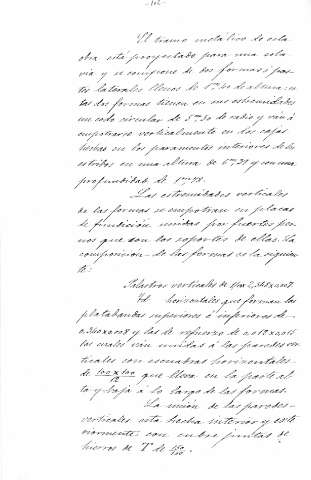 El tramo metálico de esta
obra está proyectado para una sola
via y se compone de dos formas ó par-
tes laterales llenos de 1,m40 de altura: es
tas dos formas tienen en sus extremidades
un codo circular de 5m30 de radio y van á
empotrarse verticalmente en dos cajas
hechas en los paramentos interiores de los
estribos en una altura de 6m y con una
profundidad de
Las extremidades verticales
de las formas se empotran en placas
de fundición unidas por fuertes per-
nos que son los soportes de ellas. La
composición de las formas es la siguien-
te:
Palastros verticales de
Id horizontales que forman las
platabandas superiores é inferiores de
0,340x0,008 y las de refuerzo de
los cuales van unidas á las paredes ver
ticales con escuadras horizontales
de 100x100/12 que lleva en la parte al
ta y baja á lo largo de las formas.
La unión de las paredes
verticales esta hecha interior y exte
riormente con cubre juntas de
hierros de T de